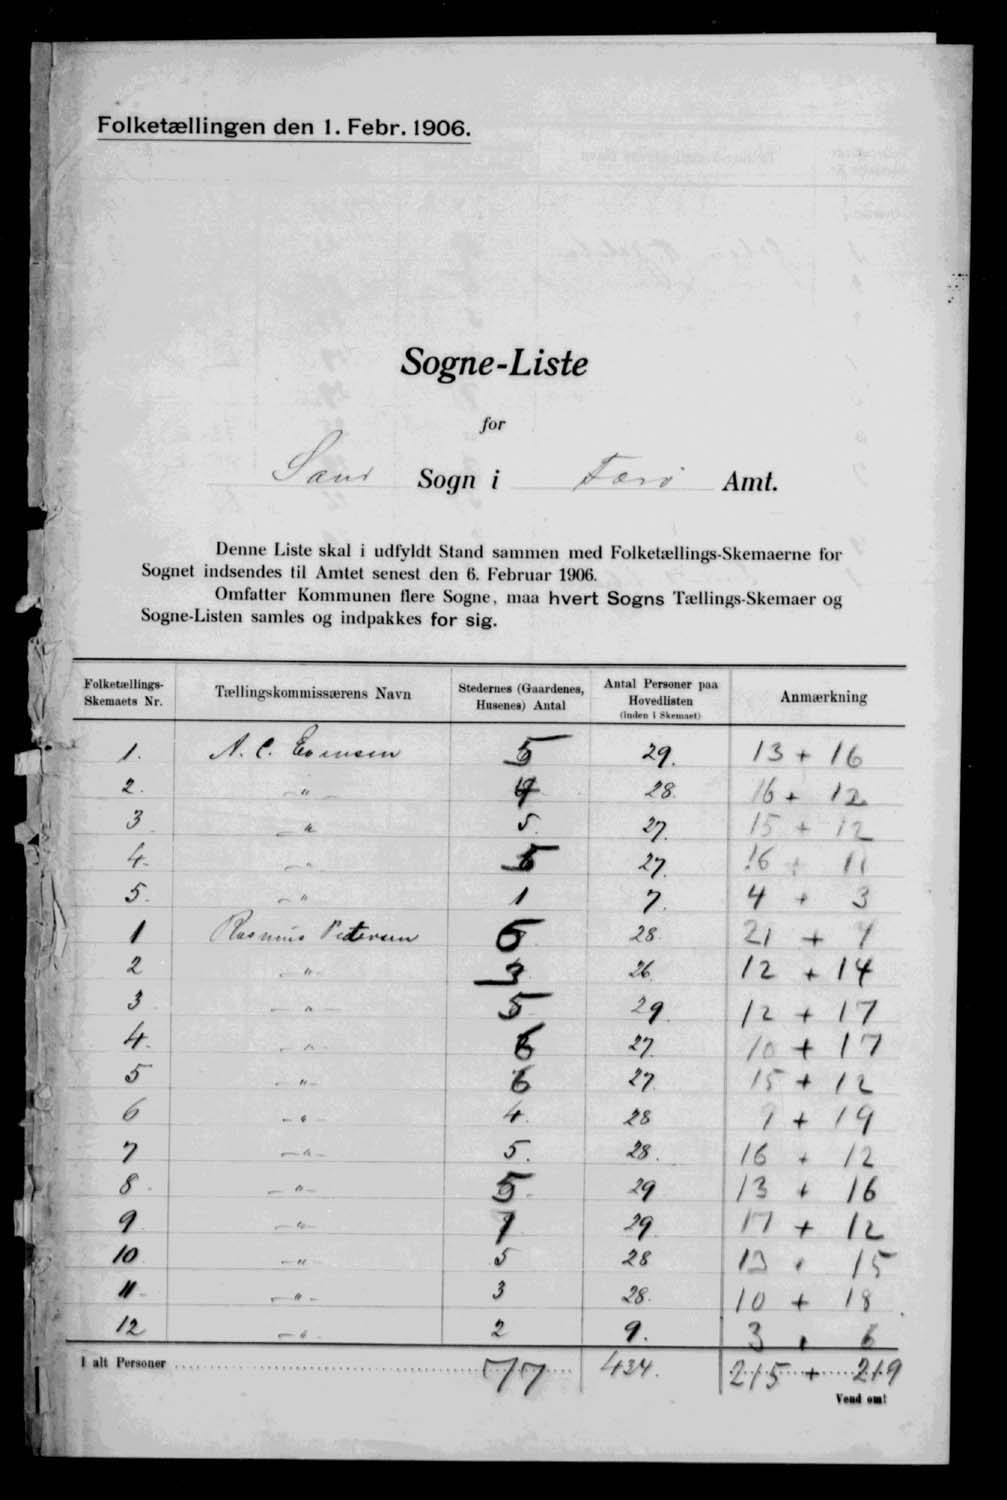 Folketællingen den 1. Febr. 1906.
Sogne-Liste
for
Sand Sogn i Færø Amt.
Denne Liste skal i udfyldt Stand sammen med Folketællings-Skemaerne for
Sognet indsendes til Amtet senest den 6. Februar 1906.
Omfatter Kommunen flere Sogne, maa hvert Sogns Tællings-Skemaer og
Sogne-Listen samles og indpakkes for sig.
Folketællings-Skemaets Nr. Tællingskommissærens Navn Stedernes (Gaardenes, Husenes) Antal Antal Personer paa Hovedlisten (inden i Skemaet) Anmærkning
1. A. C. Evensen 5 29. 13 + 16
2. -"- 28. 16 + 12
3 -"- 5. 27. 15 + 12
4. -"- 5 27. 16 + 11
5. -"- 1 7. 4 + 3
1 Rasmus Petersen 28. 21 + 7
2 -"- 3 26. 12 + 14
3 -"- 5 29 12 + 17
4. -"- 27. 10 + 17
5 -"- 6 27. 15 + 12
6 -"- 4. 28 9 + 19
7 -"- 5. 28. 16 + 12
8. -"- 5. 29 13 + 16
9 -"- 29 17 + 12
10 -"- 5 28 13 + 15
11 -"- 3 28. 10 + 18
12 -"- 2 9. 3 + 6
I alt Personer 77 434. 215 + 219
Vend om!